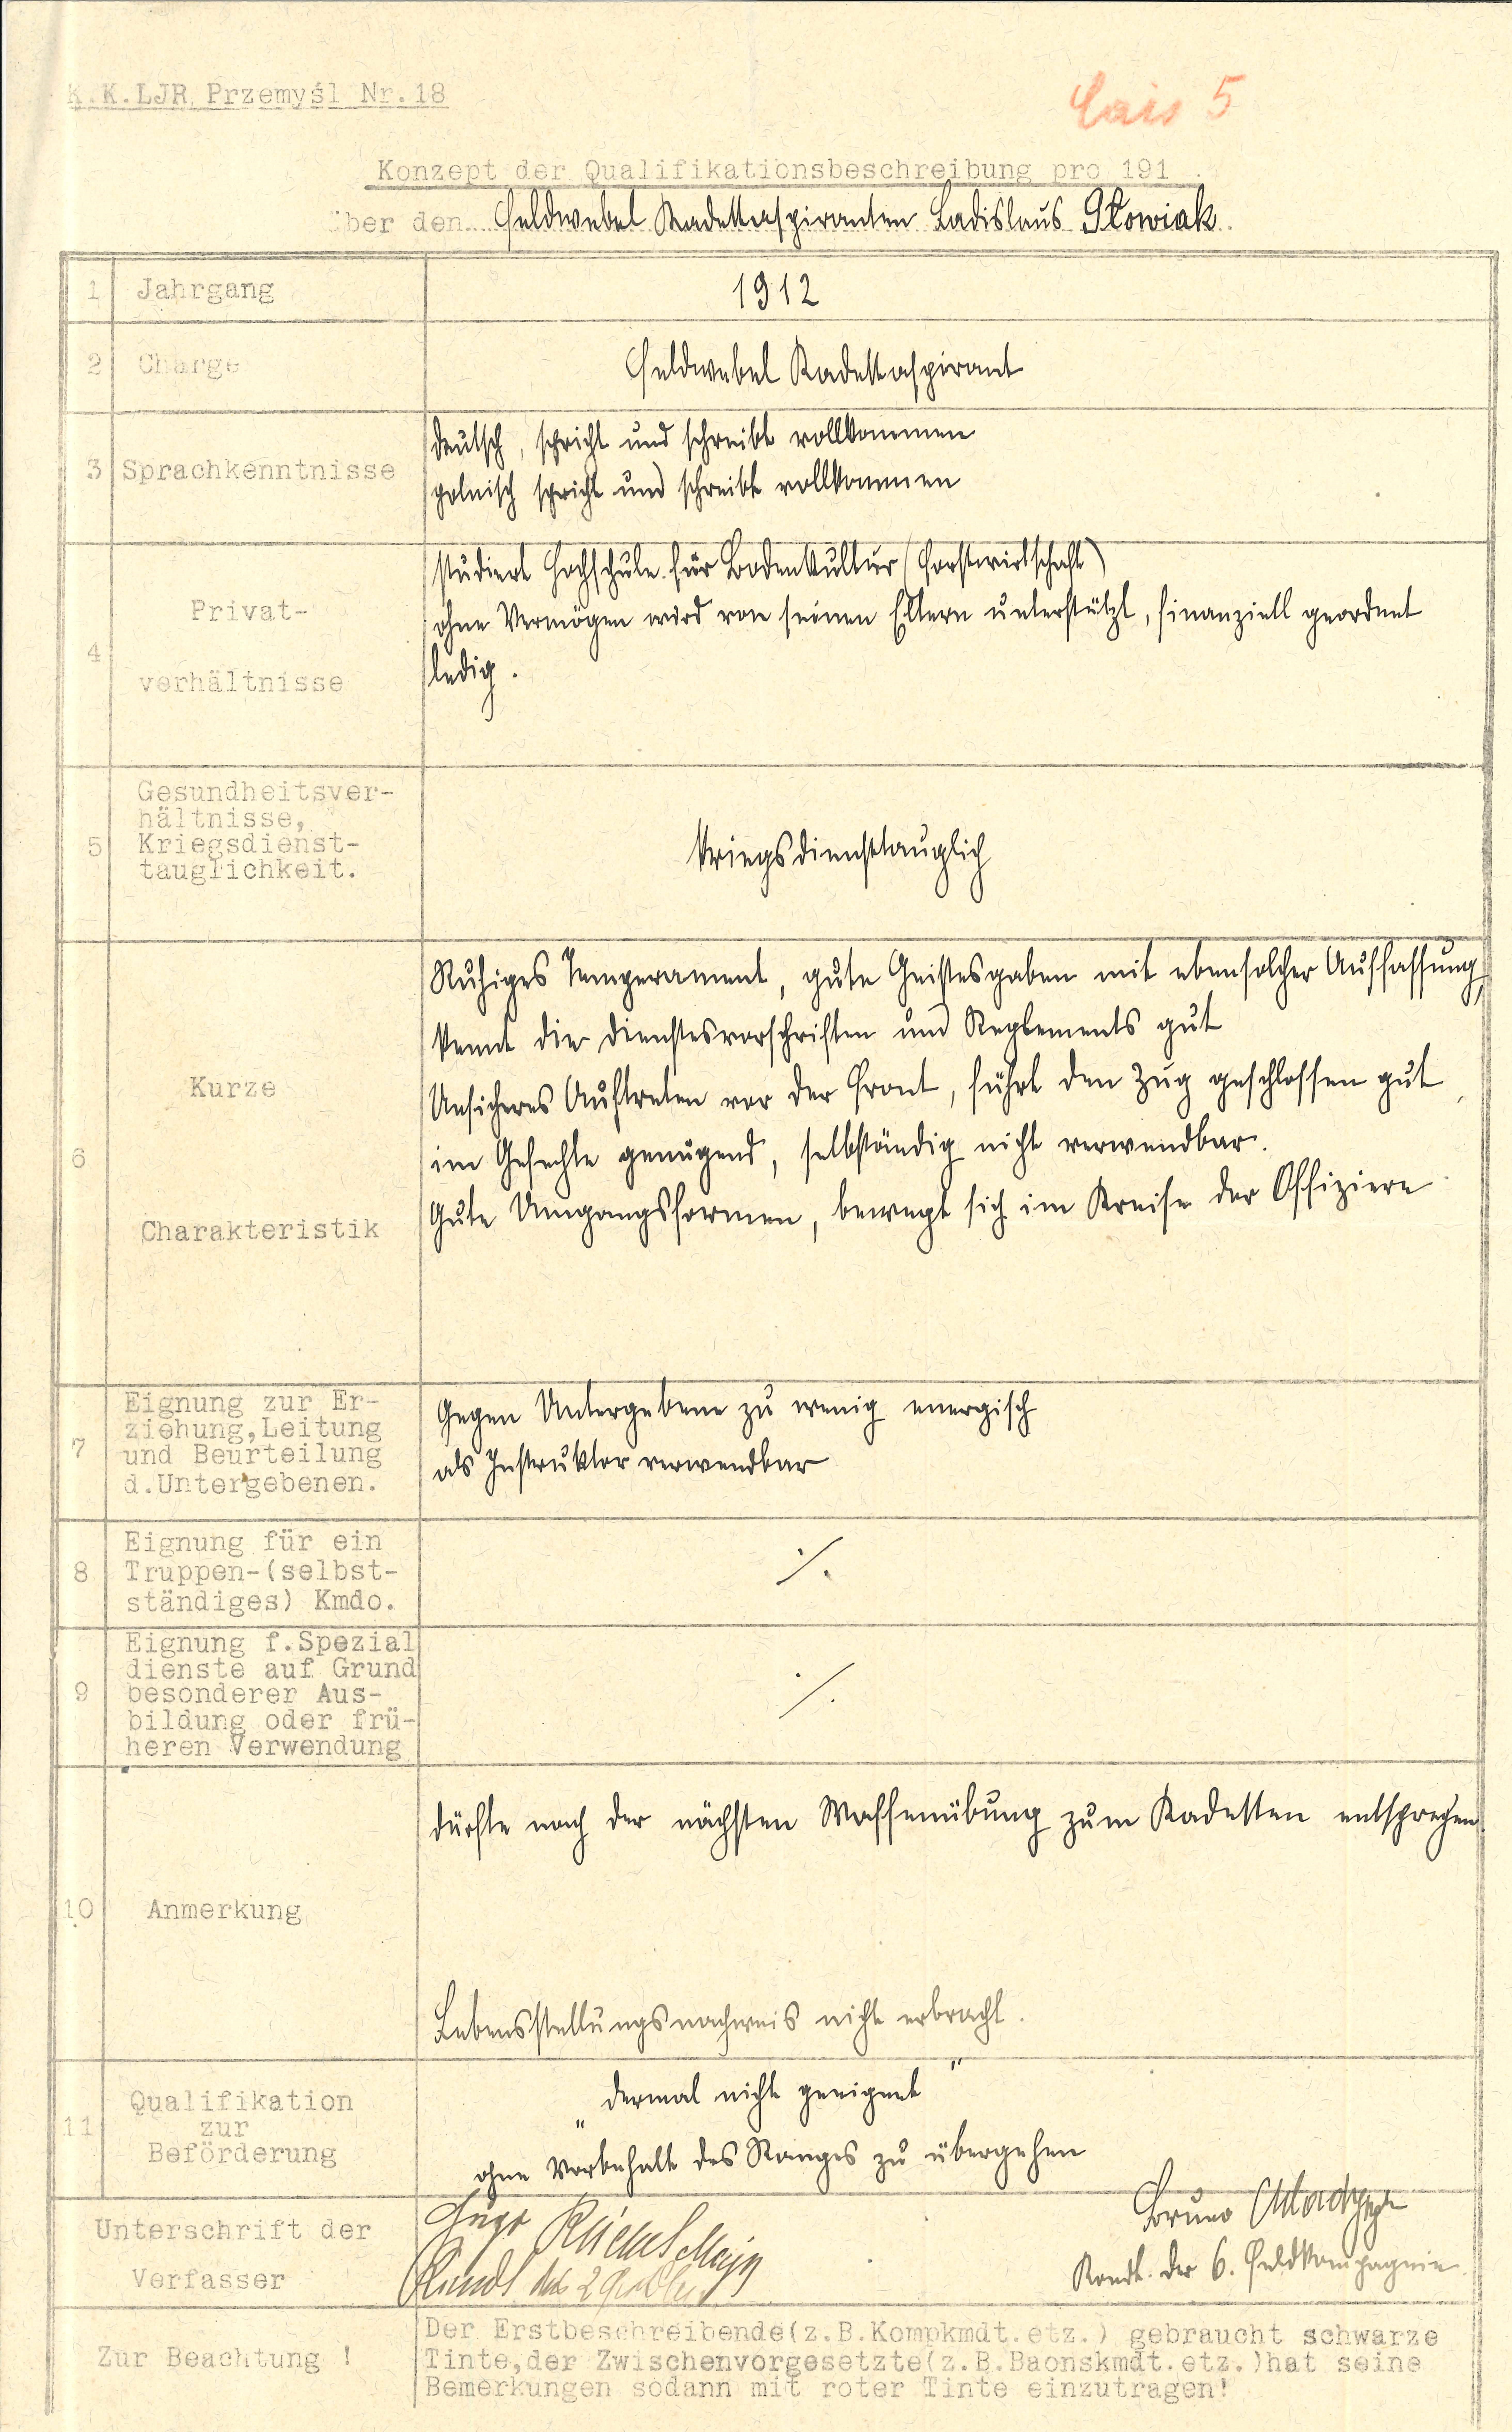 K.K.LJR Przemyśl Nr.18
5
Konzept der Qualifikationsbeschreibung pro 191 .
über den Feldwebel Kadettaspiranten Ladislaus Słowiak
1 Jahrgang 1912
2 Charge Feldwebel Kadettaspirant
3 Sprachkenntnisse
deutsch, spricht und schreibt vollkommen
polnisch spricht und schreibt vollkommen
4 Privat-
verhältnisse
studiert Hochschule für Bodenkultur (Forstwirtschaft)
ohne Vermögen wird von seinen Eltern unterstützt, finanziell geordnet
ledig.
5 Gesundheitsver-
hältnisse,
Kriegsdienst-
tauglichkeit.
kriegsdiensttauglich
6 Kurze
Charakteristik
Ruhiges Temperament, gute Geistesgaben mit ebensolcher Auffassung,
kennt die Dienstesvorschriften und Reglements gut
Unsicheres Auftreten vor der Front, führt den Zug geschlossen gut,
im Gefechte genügend, selbständig nicht verwendbar.
Gute Umgangsformen, bewegt sich im Kreise der Offiziere
7 Eignung zur Er-
ziehung,Leitung
und Beurteilung
d.Untergebenen.
Gegen Untergebene zu wenig energisch
als Instruktor verwendbar
8 Eignung für ein
Truppen-(selbst-
ständiges) Kmdo.
./.
9 Eignung f.Spezial
dienste auf Grund
besonderer Aus-
bildung oder frü-
heren Verwendung
./.
10 Anmerkung
dürfte nach der nächsten Waffenübung zum Kadetten entsprechen
Lebensstellungsnachweis nicht erbracht.
11 Qualifikation
zur
Beförderung
„dermal nicht geeignet"
ohne Vorbehalt des Ranges zu übergehen
Unterschrift der
Verfasser
Hugo
Bruno
Komdt. der 6. Feldkompagnie.
Zur Beachtung !
Der Erstbeschreibende(z.B.Kompkmdt.etz.) gebraucht schwarze
Tinte,der Zwischenvorgesetzte(z.B.Baonskmdt.etz.)hat seine
Bemerkungen sodann mit roter Tinte einzutragen!